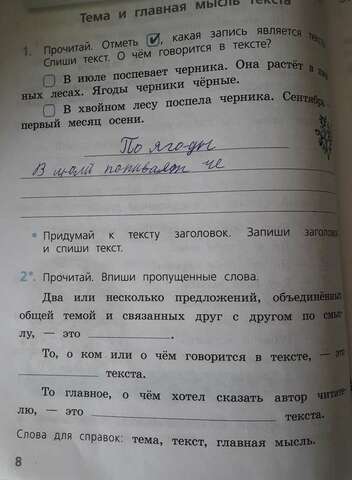 Тема и главная мысль текста
1. Прочитай. Отметь ☑, какая запись является
Спиши текст. О чём говорится в тексте?
В июле поспевает черника. Она растёт в
ных лесах. Ягоды черники чёрные.
В хвойном лесу поспела черника. Сентябрь
первый месяц осени.
По ягоды
В
• Придумай к тексту заголовок. Запиши
и спиши текст.
2*. Прочитай. Впиши пропущенные слова.
Два или несколько предложений, объединённы
общей темой и связанных друг с другом по смыс
лу, — это
То, о ком или о чём говорится в тексте, — это
текста.
То главное, о чём хотел сказать автор читате-
лю, — это текста.
Слова для справок: тема, текст, главная мысль.
8